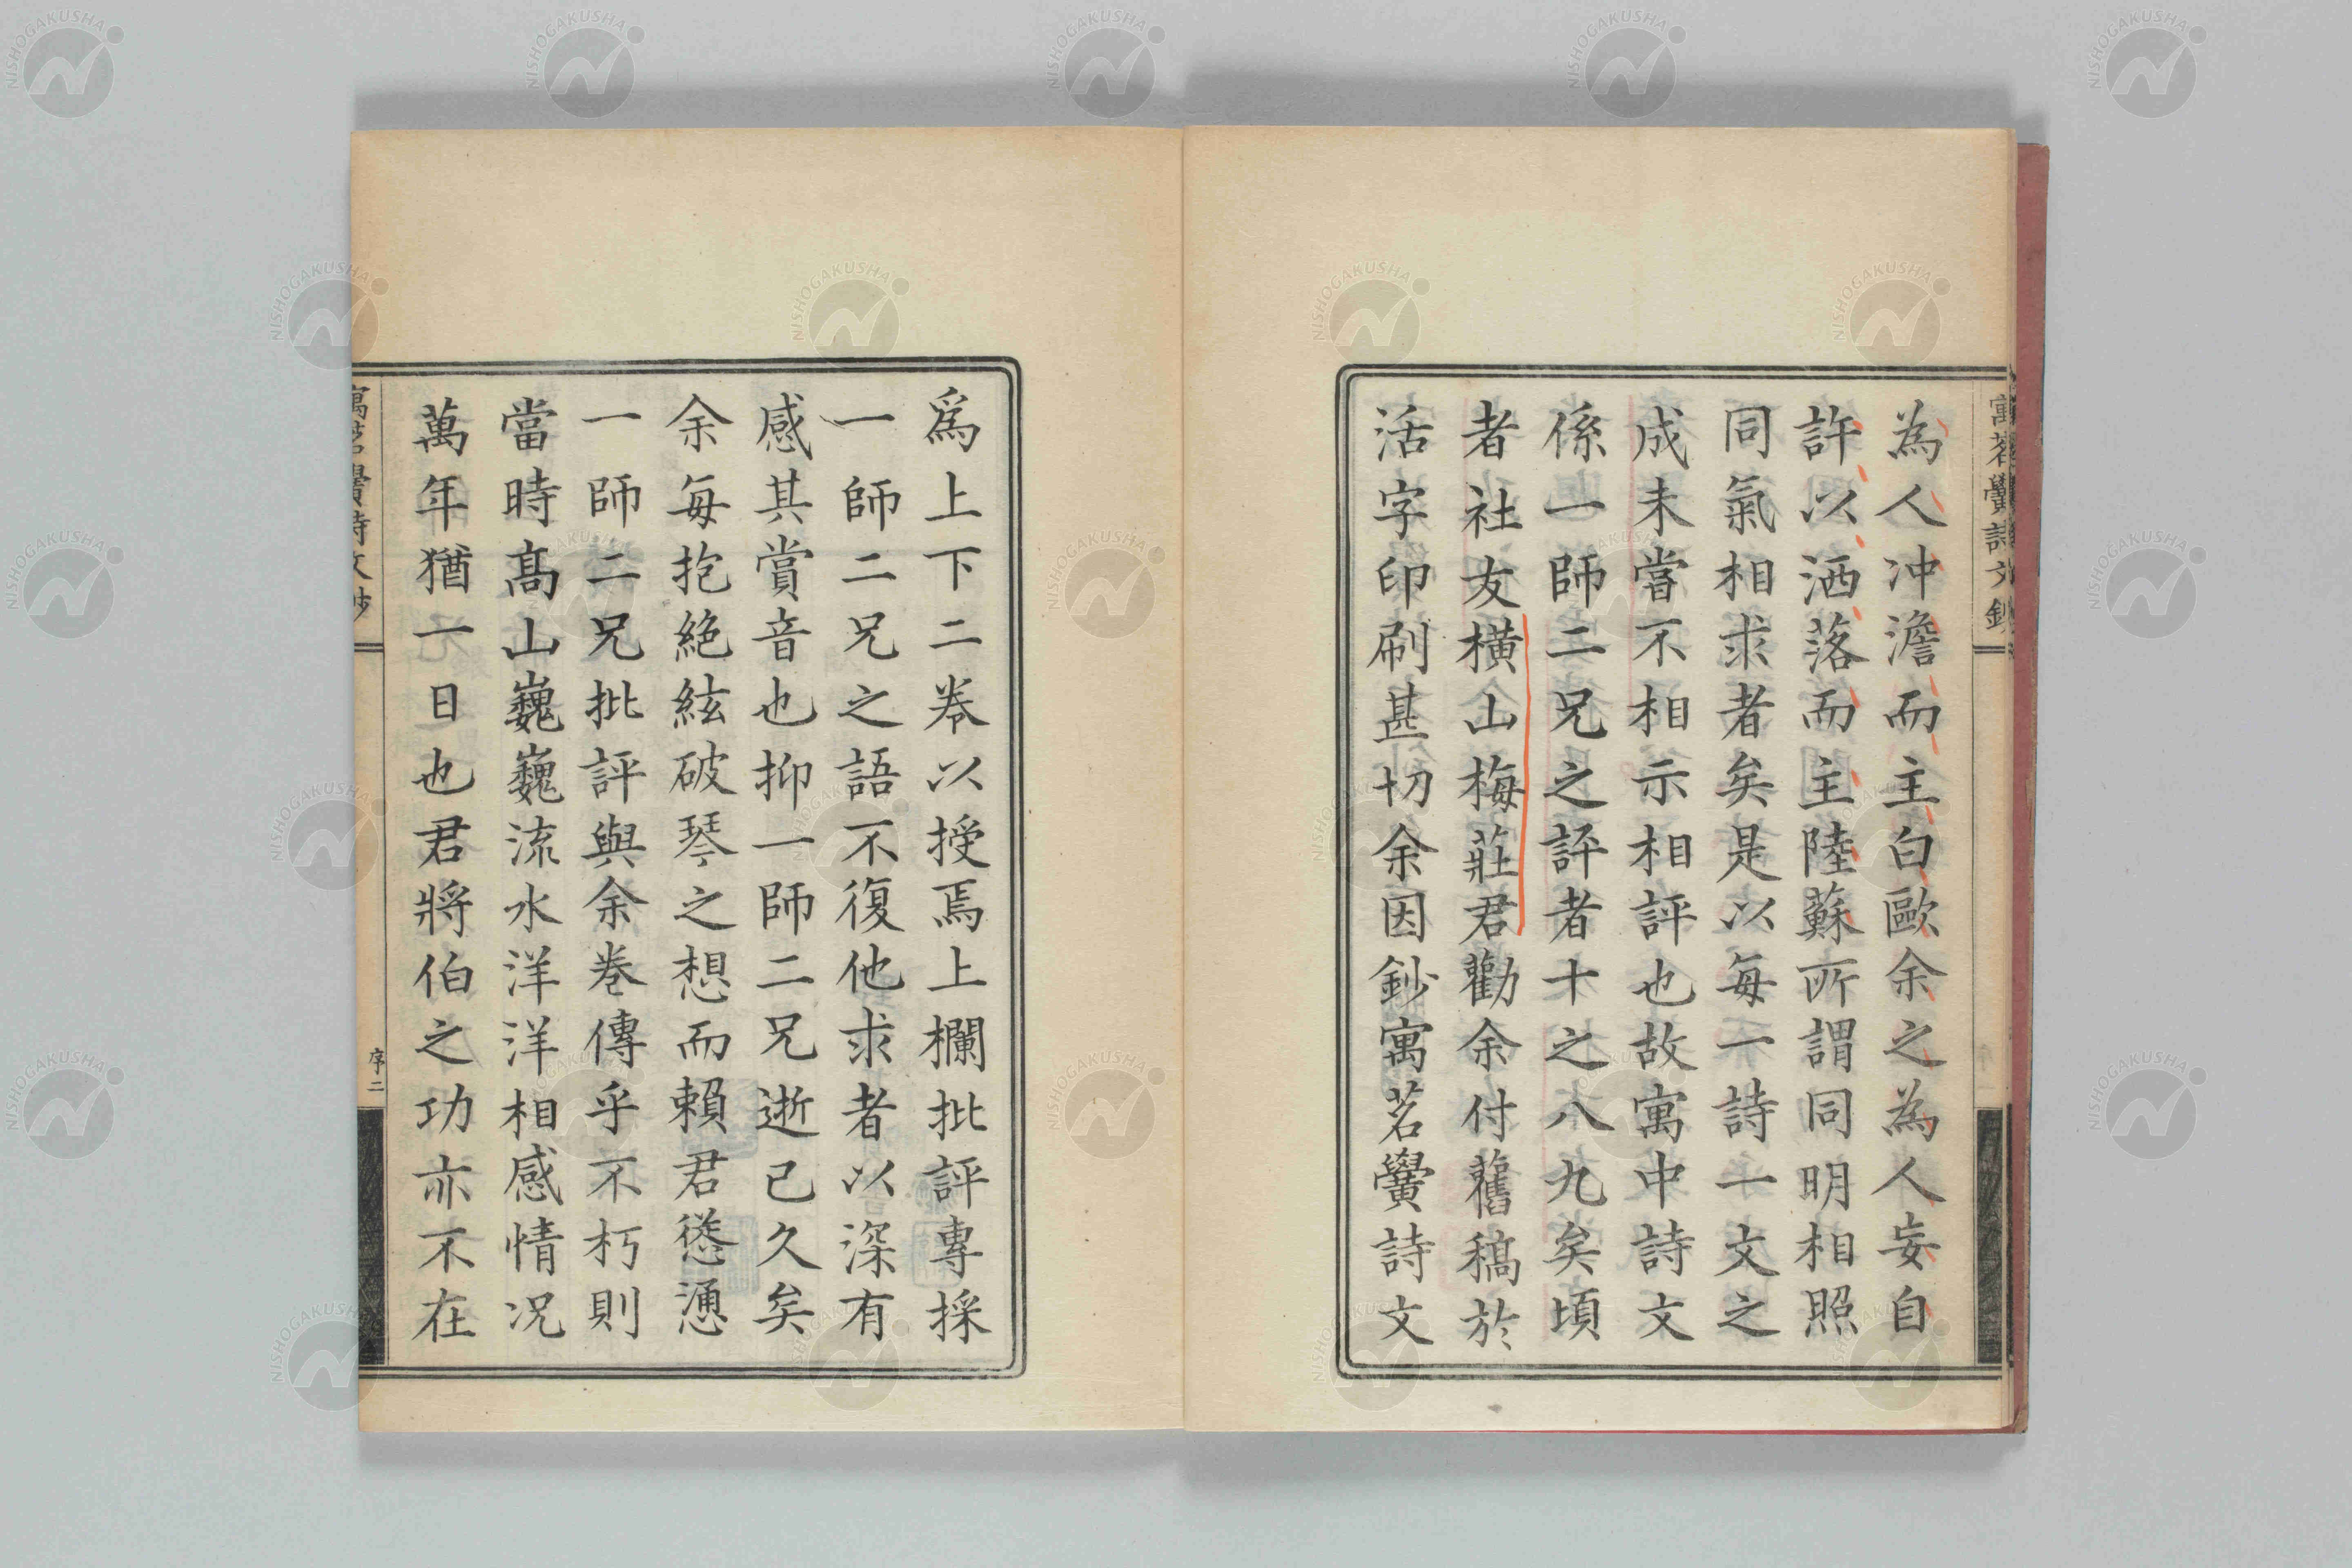 為人冲澹而主白歐余之為人妄自
許以洒落而主陸蘇所謂同明相照
同氣相求者矣是以每一詩一文之
成未嘗不相示相評也故寓中詩文
係一師二兄之評者十之八九矣頃
者社友橫山梅莊君勸余付舊稿於
活字印刷甚切余因鈔寓茗黌詩文
爲上下二卷以授焉上欄批評專採
一師二兄之語不復他求者以深有
感其賞音也抑一師二兄逝已久矣
余每抱絶絃破琴之想而賴君慫慂
一師二兄批評與余卷傳乎不朽則
當時髙山巍巍流水洋洋相感情况
萬年猶一日也君將伯之功亦不在
寓茗黌詩文鈔
序二
NISHOGAKUSHA